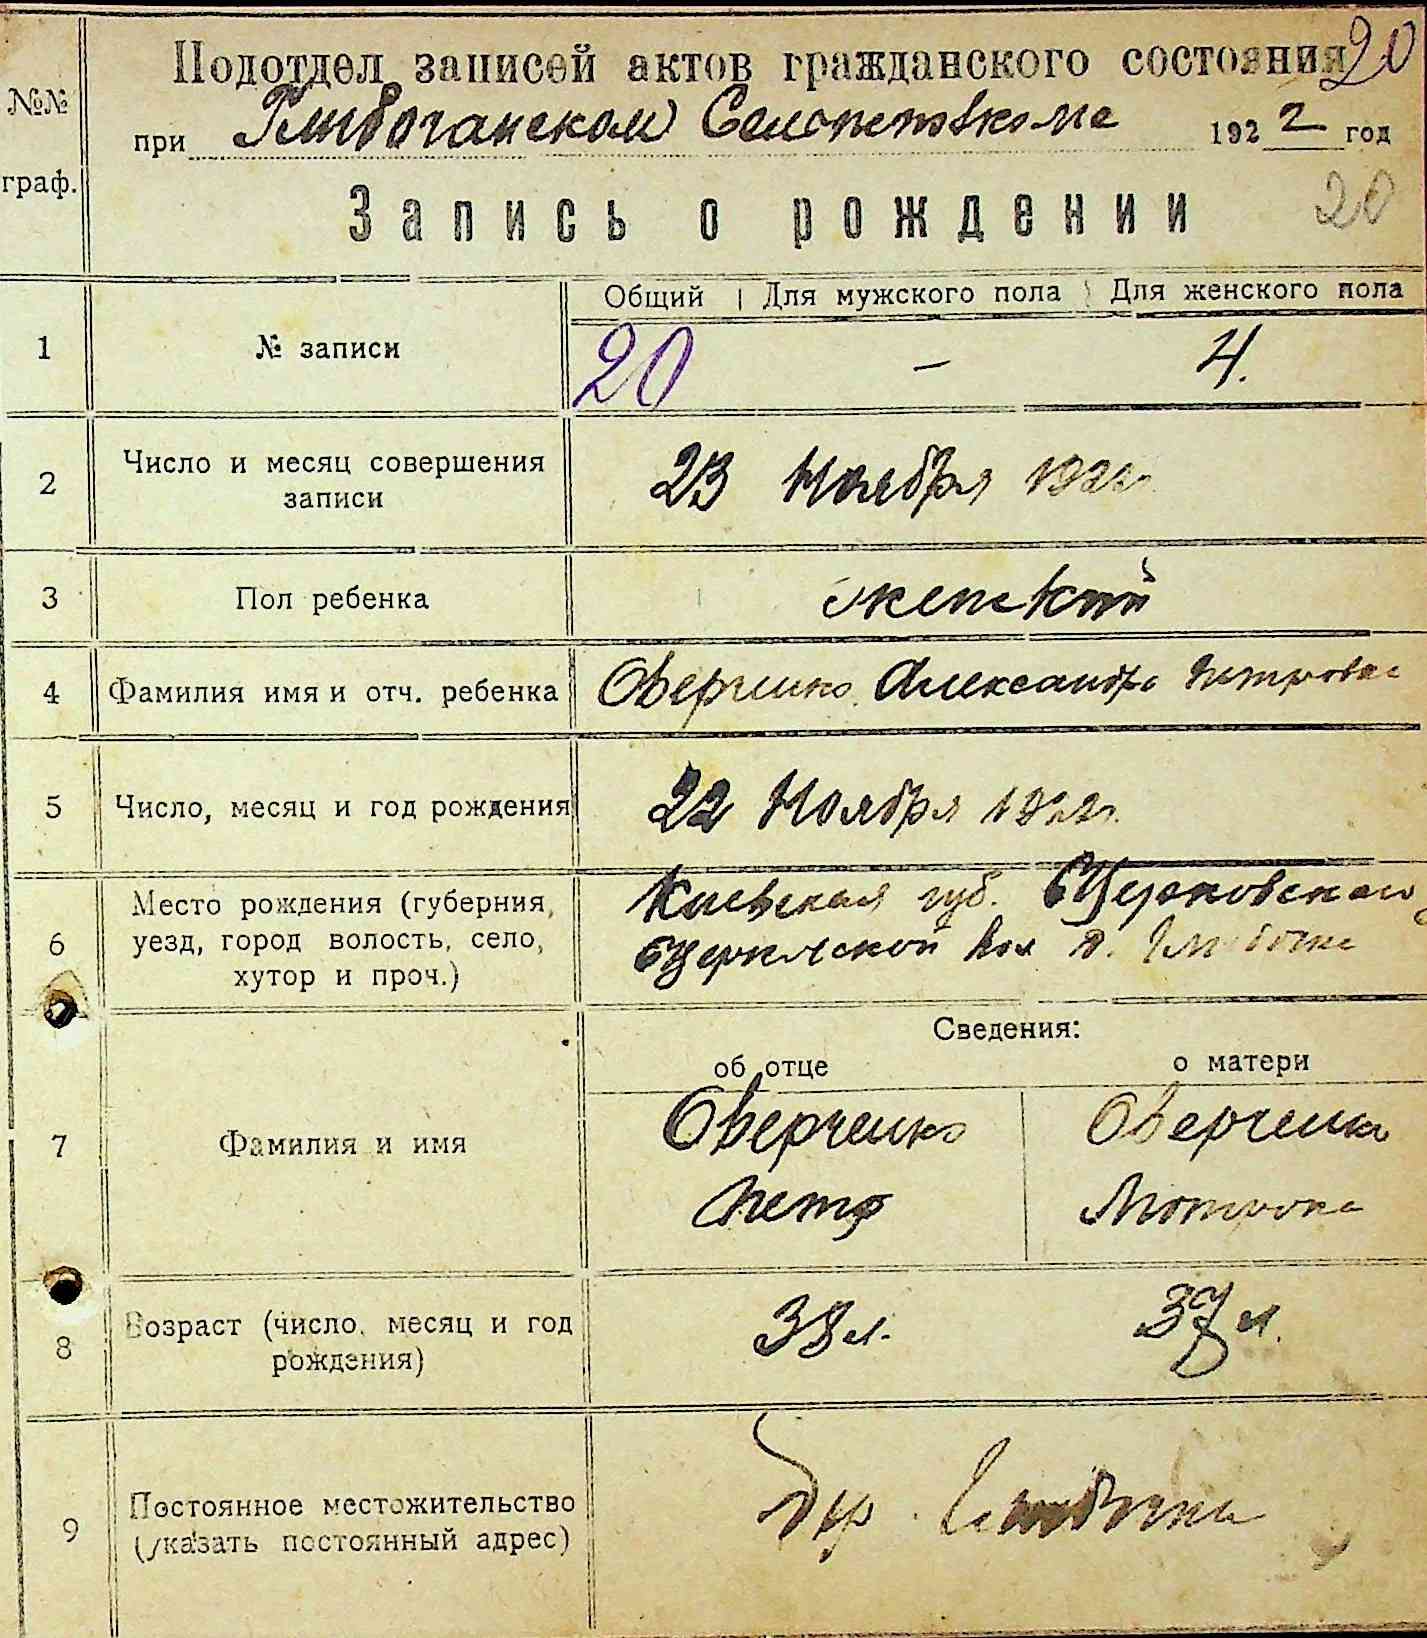 №№
граф.
Подотдел записей актов гражданского состояния 20
при 1922 год
Запись о рождении 20
Общий Для мужского пола Для женского пола
1 № записи 20 – 4.
2 Число и месяц совершения записи
23 Ноября 1922г.
3 Пол ребенка женский
4 Фамилия имя и отч. ребенка Оверченко Александра Петровна
5 Число, месяц и год рождения 22 Ноября 1922г.
6 Место рождения (губерния,
уезд, город волость, село,
хутор и проч.)
Киевская губ. Б Церковского
Б Церковской вол д.
Сведения:
об отце о матери
7 Фамилия и имя
Оверченко Оверченко
Петр Мотрона
8 Возраст (число, месяц и год
рождения)
38 л. 37 л.
9 Постоянное местожительство
(указать постоянный адрес)
дер.